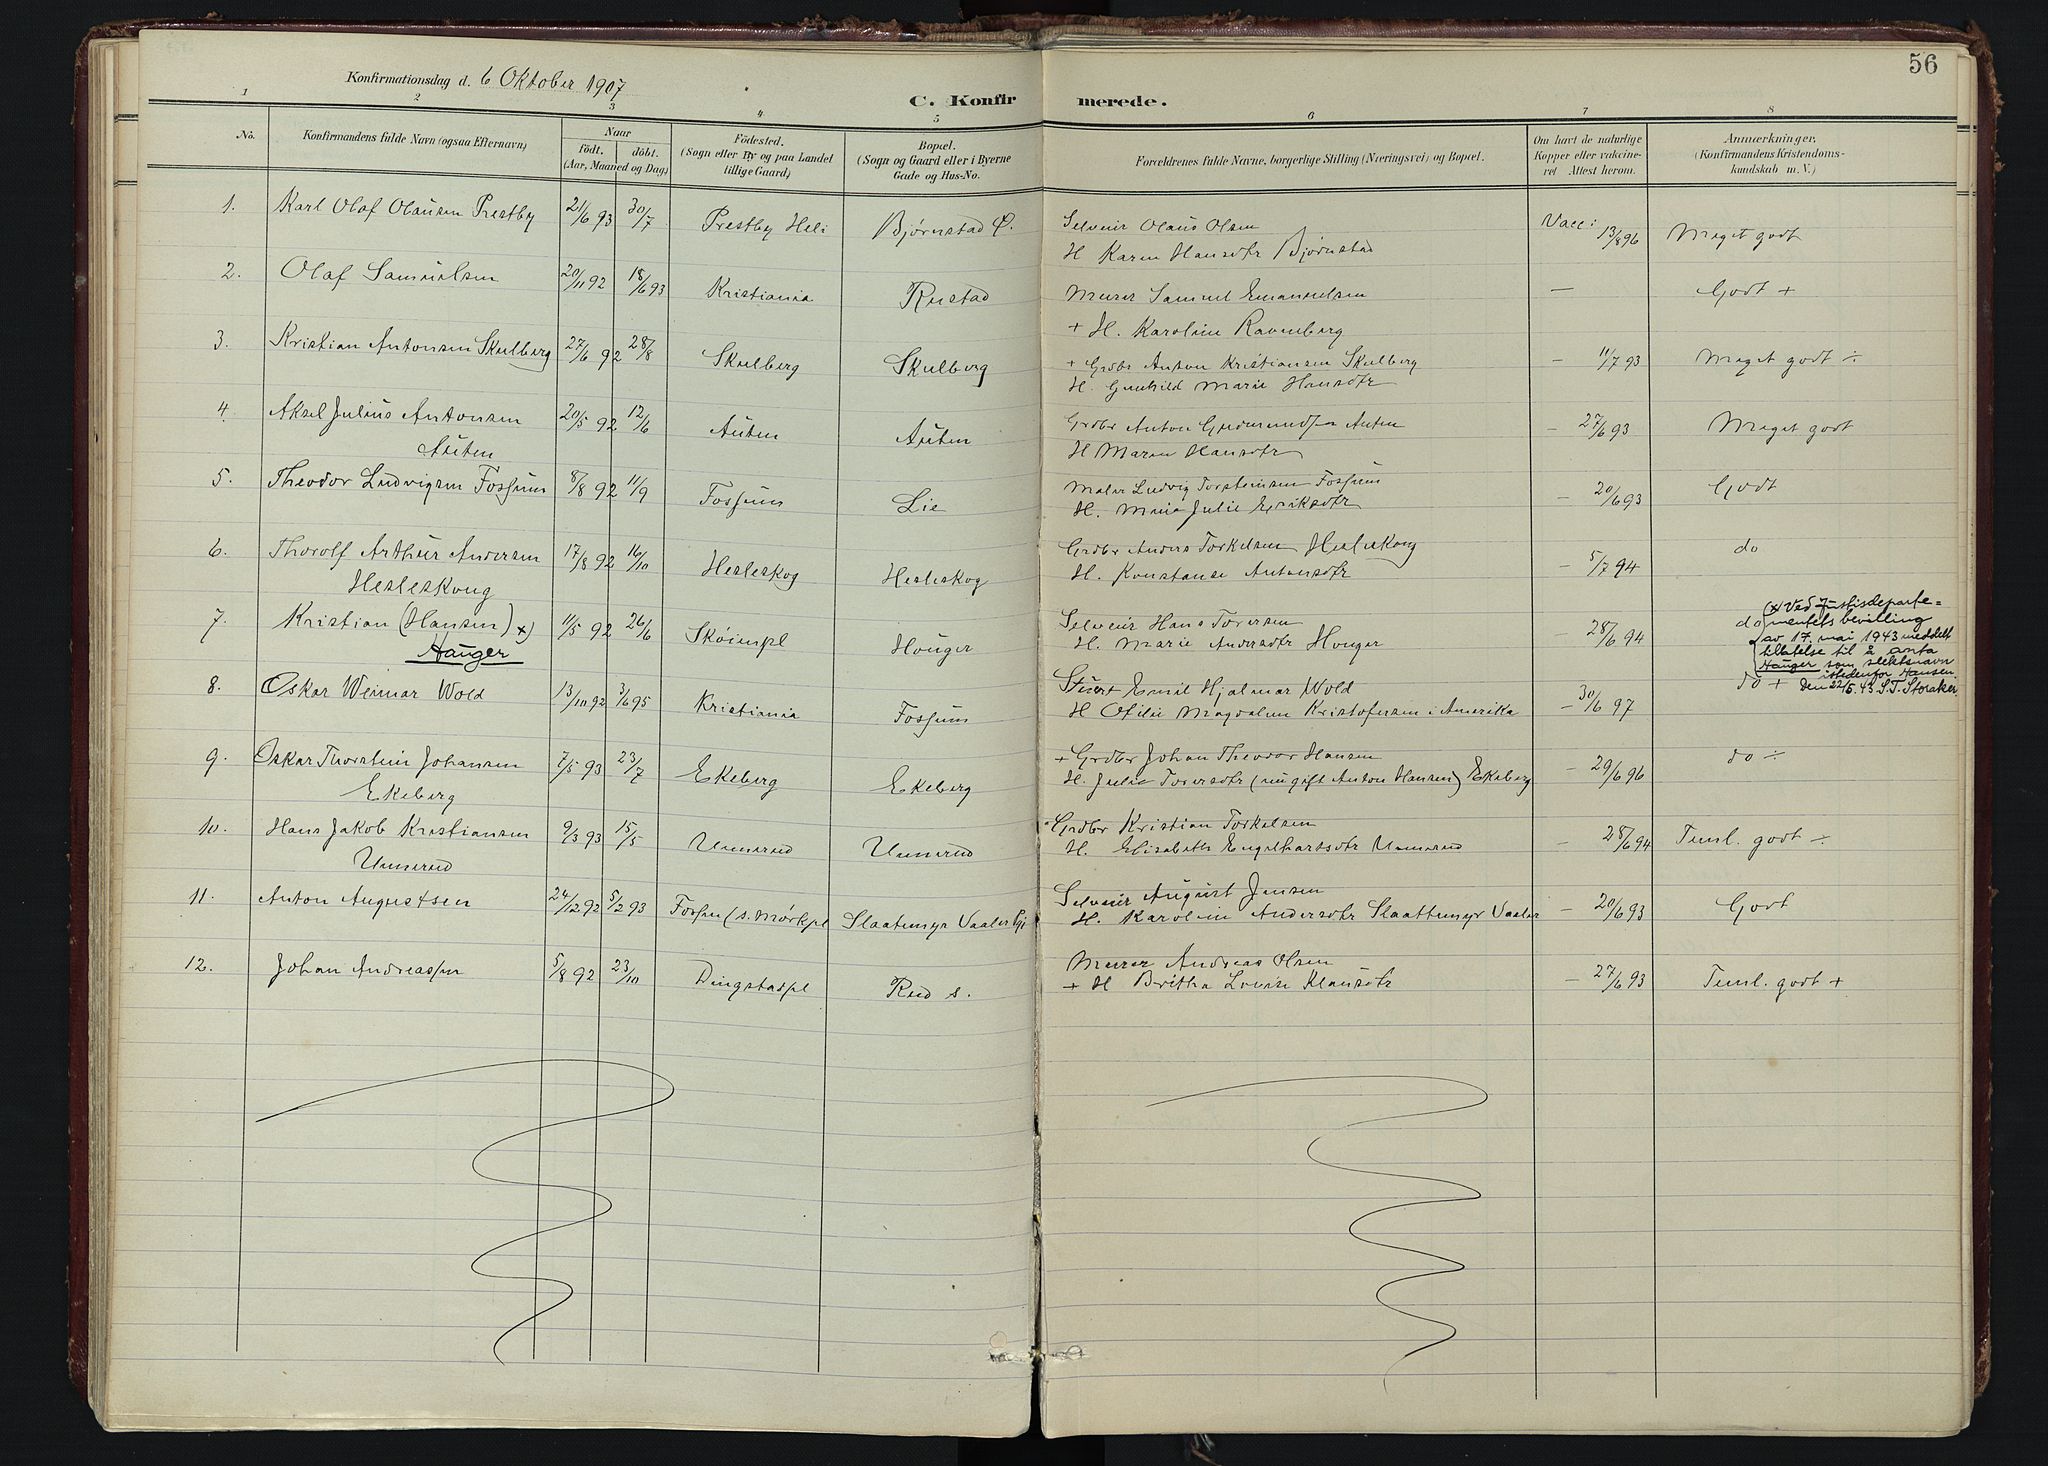 56
Konfirmationsdag d. 6 Oktober 1907
C. Konfirmerede.
1 2 3 4 5 6 7 8
No. Konfirmandens fulde Navn (ogsaa Efternavn) Naar födt. döbt. (Aar, Maaned og Dag) Födested. (Sogn eller By og paa Landet tillige Gaard) Bopæl. (Sogn og Gaard eller i Byerne Gade og Hus-No. Forældrenes fulde Navne, borgerlige Stilling (Næringsvei) og Bopæl. Om havt de naturlige Kopper eller vakcineret Attest herom. Anmærkninger. (Konfirmandens Kristendomskundskab m. V.)
1. Karl Olaf Olausen Prestby 21/6 93 30/7 Prestby Heli Bjørnstad Ø. Selveier Olaus Olsen Vacc: 13/8 96 Meget godt
H Karen Hansdtr Bjørnstad
2. Olaf Samuelsen 20/11 92 18/6 93 Kristiania Rustad Murer Samuel Emanuelsen — Godt +
+ H. Karoline Ravenberg
3. Kristian Antonsen Skulberg 27/6 92 28/8 Skulberg Skulberg + Grdbr Anton Kristiansen Skulberg – 11/7 93 Meget godt ÷
H. Gunhild Marie Hansdtr
4. Aksel Julius Antonsen 20/5 92 12/6 Auten Auten Grdbr Anton Gudmundsen Auten – 27/6 93 Meget godt
Auten H Maren Hansdtr
5. Theodor Ludvigsen Fossum 8/8 92 11/9 Fossum Lie Maler Ludvig Torsteinsen Fossum – 20/6 93 Godt
H. Maria Julie Eriksdtr
6. Thorolf Arthur Andersen 17/8 92 16/10 Hesleskog Hesleskog Grdbr Anders Torkelsen Hesleskoug – 5/7 94 do
Hesleskoug H. Konstanse Antonsdtr
7. Kristian (Hansen) x) 11/5 92 26/6 Skóimpl Houger Selveier Hans Toversen – 28/6 94 do
Hauger H. Marie Andersdtr Houger
(x) Ved Justisdeparte=
mentets bevilling
av 17. mai 1943 meddelt
tillatelse til å anta
Hauger som slektsnavn
istedenfor Hansen.
den 22/5. 43 S.T. Storaker
8. Oskar Weimar Wold 13/10 92 3/6 95 Kristiania Fossum Stuert Emil Hjalmar Wold – 30/6 97 do +
H Ofilie Magdalene Kristofersen i Amerika
9. Oskar Thorstein Johansen 7/5 93 23/7 Ekeberg Ekeberg + Grdbr Johan Theodor Hansen – 29/6 96 do ÷
Ekeberg H. Julie Toversdtr (nu gift Anton Hansen) Ekeberg
10. Hans Jakob Kristiansen 9/3 93 15/5 Unnerud Unnerud Grdbr Kristian Torkelsen – 28/6 94 Teml. godt ÷
Unnerud H. Elisabeth Engelhartsdtr Unnerud
11. Anton Augustsen 24/12 92 5/2 93 Fossen (s. Mørkpl Slaatemyr Vaaler Selveier August Jensen – 20/6 93 Godt
H. Karoline Andersdtr Slaattemyr Vaaler
12. Johan Andreassen 5/8 92 23/10 Dingstaspl Rud s. Murer Andreas Olsen – 27/6 93 Teml. godt +
+ H Britha Lovise Klausdtr